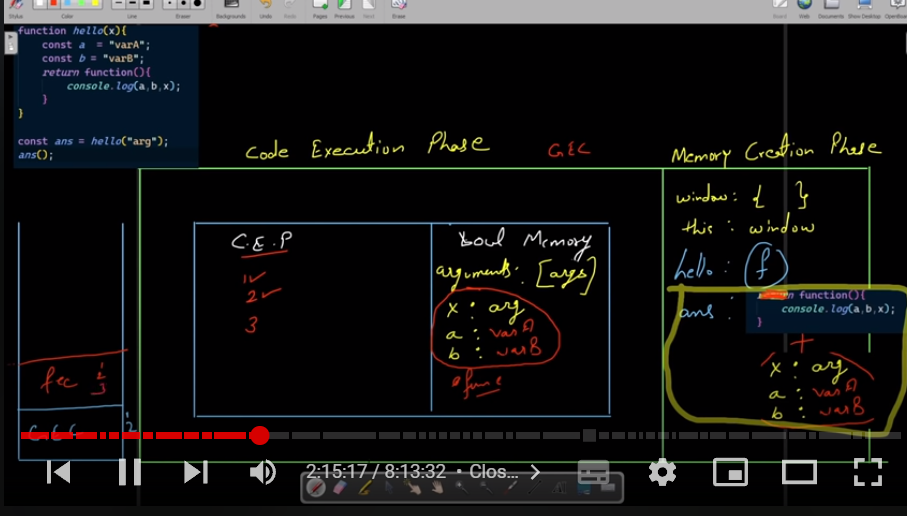 Stylus Color Line Eraser Backgrounds Undo Redo Pages Previous Next Erase Board Web Documents Show Desktop OpenBoard
function hello(x){
const a = "varA";
const b = "varB";
return function(){
console.log(a,b,x);
}
}
const ans = hello("arg");
ans();
Code Execution Phase
GEC
Memory Creation Phase
C.E.P
1
2
3
Local Memory
arguments: [args]
x : arg
a : varA
b : varB
func
window: { }
this : window
hello: (f)
ans :
function(){
console.log(a,b,x);
}
+
x : arg
a : varA
b : varB
fec 1
2
3
2:15:17 / 8:13:32 • Clos... >